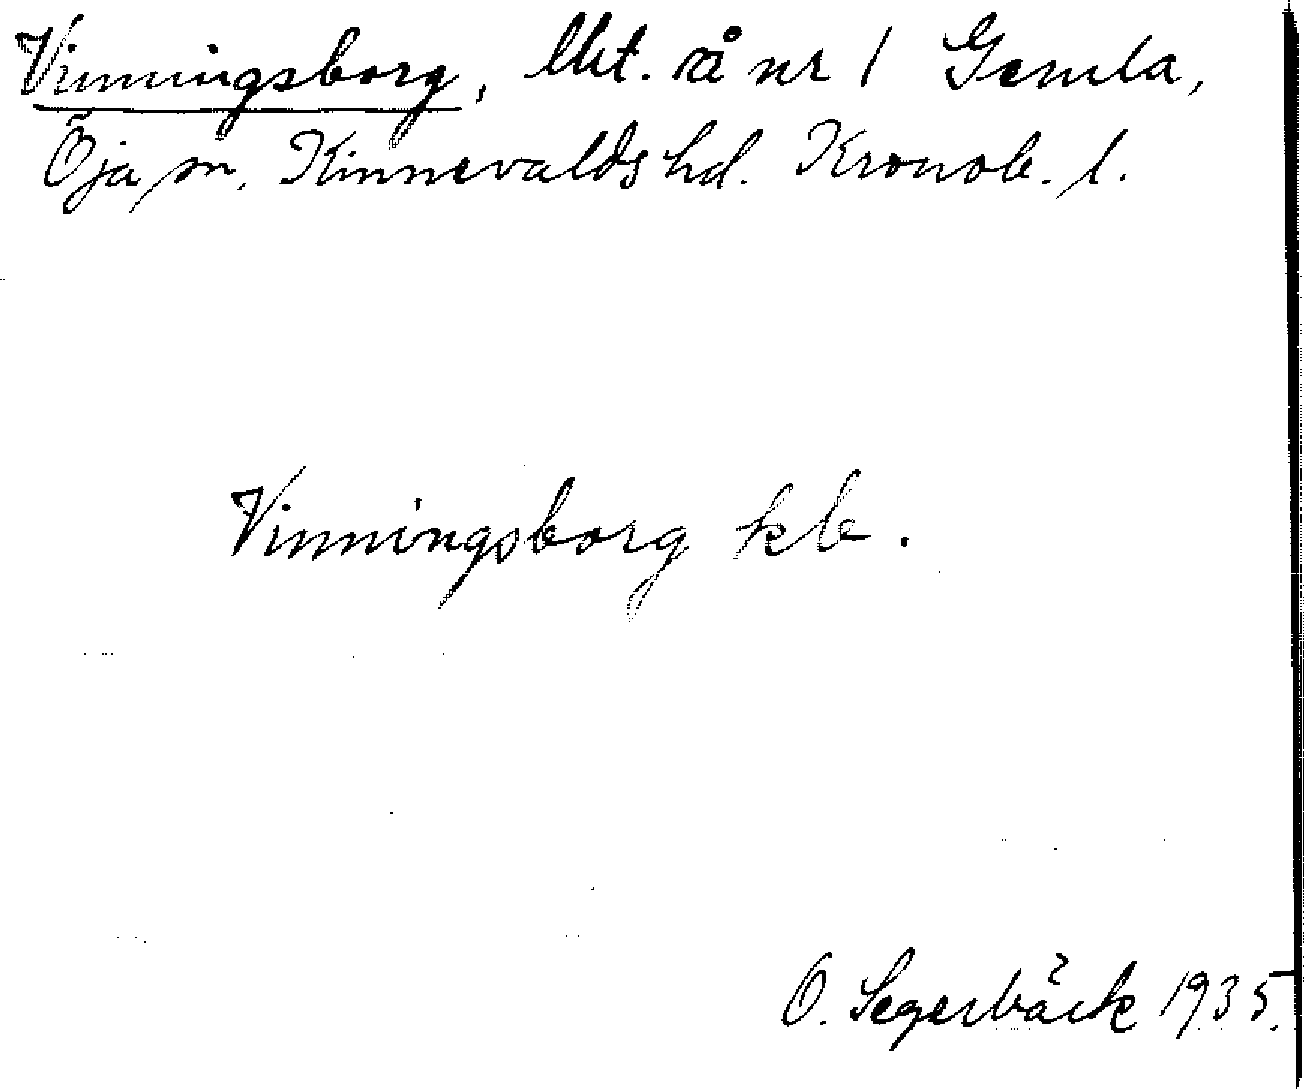 Vinningsborg, lht. å nr 1 Gemla,
Öja sn, Kinnevalds hd. Kronob. l.
Vinningsborg kb.
O. Segerbäck 1935.